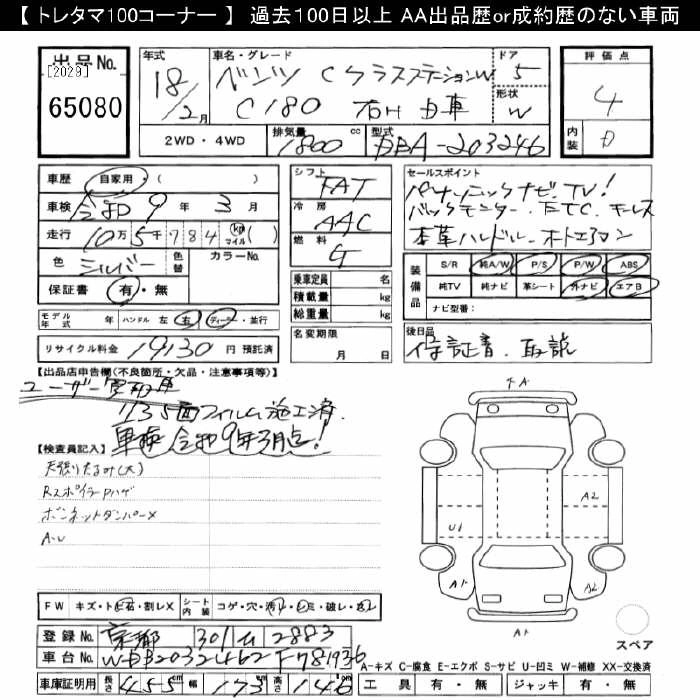 【 トレタマ100コーナー 】 過去100日以上 AA出品歴or成約歴のない車両
出品No.
[2029]
65080
年式
18/2月
車名・グレード
ベンツ CクラスステーションW
C180 右H D車
ドア
5
形状
W
評価点
4
内装
D
2WD・4WD
排気量
1800 cc
型式
DBA-203246
車歴 自家用 ( )
車検 令和 9 年 3 月
走行 10万 5千 7 8 4 km マイル ( )
色 シルバー 色替 カラーNo.
保証書 有・無
モデル年式 年 ハンドル 左 右 ディーラー・並行
リサイクル料金 19130 円 預託済
シフト
FAT
冷房
AAC
燃料
G
乗車定員 名
積載量 kg
総重量 kg
名変期限
月 日
セールスポイント
パナソニックナビ.TV!
バックモニター.ETC.キーレス
本革ハンドル.オートエアコン
装備品
S/R 純A/W P/S P/W ABS
純TV 純ナビ 革シート 外ナビ エアB
ナビ型番:
後日品
保証書.取説
【出品店申告欄(不良箇所・欠品・注意事項等)】
ユーザー買取車
リア3面フィルム施工済.
車検 令和9年3月点!
【検査員記入】
天張りたるみ(大)
RスポイラーPハゲ
ボンネットダンパーX
A・U
FA
A2
U1
A1
A2
A1
スペア
FW キズ・トビ石・割レX シート内装 コゲ・穴・汚レ・シミ・破レ・スレ
登録No. 京都 301 ム 2883
車台No. WDB2032462F781936
車庫証明用 長さ 455cm 幅 173cm 高さ 146cm
A-キズ C-腐食 E-エクボ S-サビ U-凹ミ W-補修 XX-交換済
工具 有・無 ジャッキ 有・無